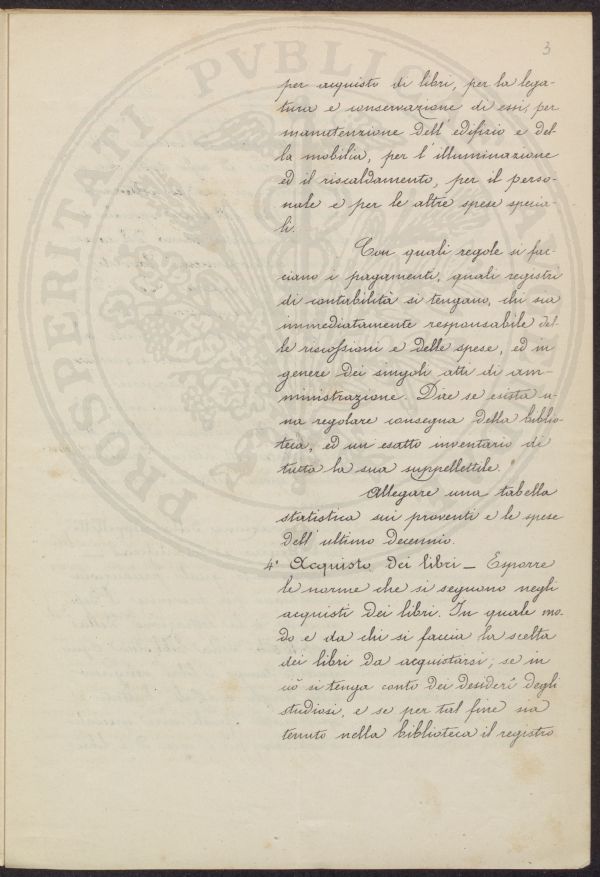 3
per acquisto di libri, per la lega-
tura e conservazione di essi, per
manutenzione dell'edifizio e del-
la mobilia, per l'illuminazione
ed il riscaldamento, per il perso-
nale e per le altre spese specia-
li.
Con quali regole si fac-
ciano i pagamenti, quali registri
di contabilità si tengano, chi sia
immediatamente responsabile del-
le riscossioni e delle spese, ed in
genere dei singoli atti di am-
ministrazione. Dire se esista u-
na regolare consegna della biblio-
teca, ed un esatto inventario di
tutta la sua suppellettile.
Allegare una tabella
statistica sui proventi e le spese
dell'ultimo decennio.
4° Acquisto dei libri — Esporre
le norme che si seguono negli
acquisti dei libri. In quale mo-
do e da chi si faccia la scelta
dei libri da acquistarsi; se in
ciò si tenga conto dei desiderî degli
studiosi, e se per tal fine sia
tenuto nella biblioteca il registro
PROSPERITATI PVBLIC